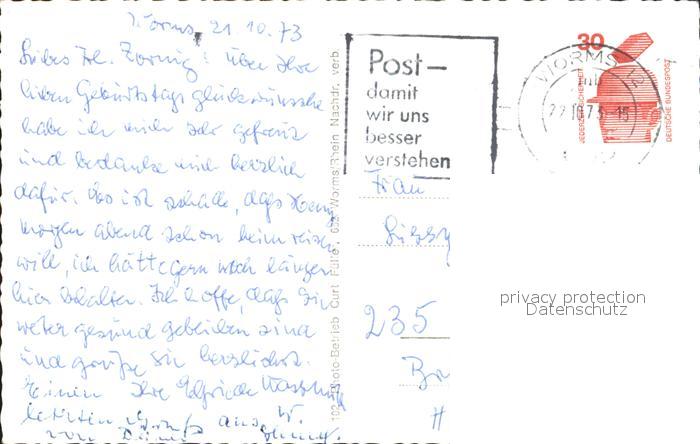 Worms, 21.10.73
Liebes Frl. Zornig! Über Ihre
lieben Geburtstagsglückwünsche
habe ich mich sehr gefreut
und bedanke mich herzlich
dafür. Es ist schade, dass
morgen abend schon heimreisen
will, ich hätte gern noch länger
hier behalten. Ich hoffe, dass Sie
weiter gesund geblieben sind
und grüße Sie herzlichst.
Ihre Elfriede
Post –
damit
wir uns
besser
verstehen
WORMS
22.10.73-15
30
JEDERZEIT SICHERHEIT
DEUTSCHE BUNDESPOST
Frau
Sissy
235
Br
H
Foto-Betrieb Curt Füller, 652 Worms/Rhein Nachdr. verb.
privacy protection
Datenschutz